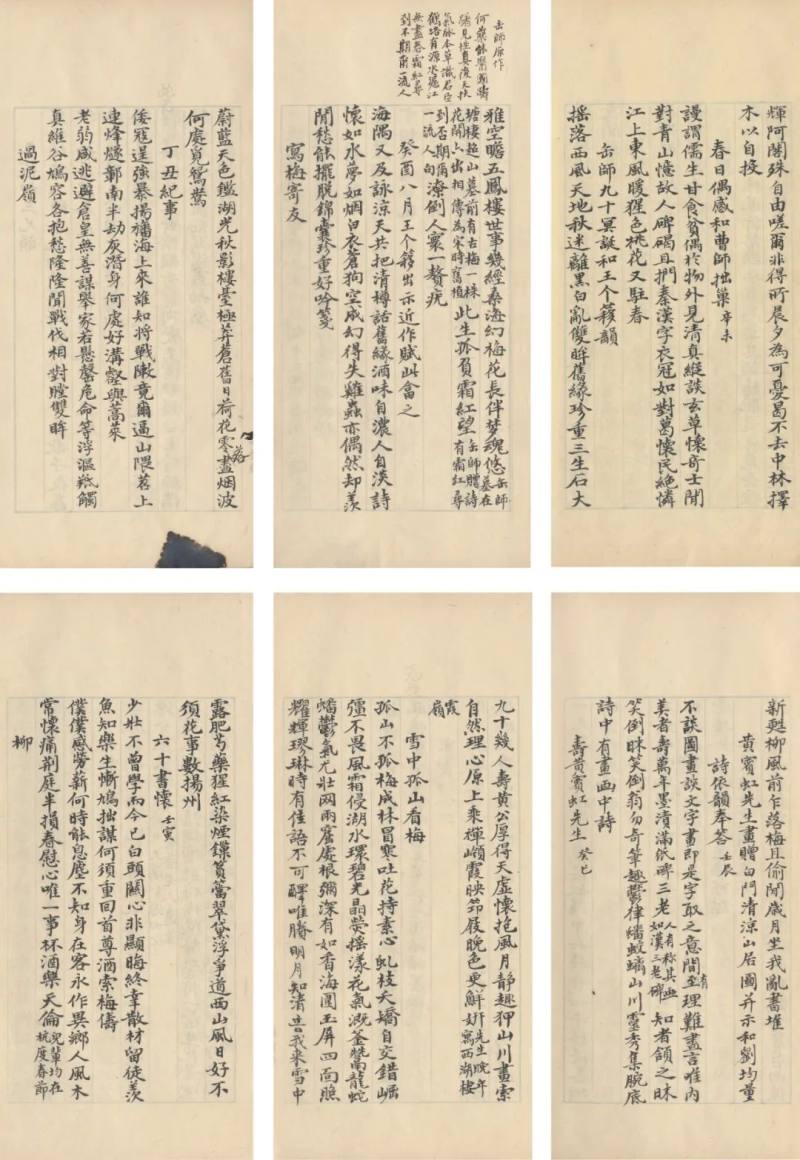 輝阿閣殊自由嗟爾非得所晨夕為可憂曷不去中林擇
木以自投
春日偶感和曹師拙巢 辛未
謾謂儒生甘食貧偶於物外見清真縱談玄草懷奇士閒
對青山憶故人碑碣且捫秦漢字衣冠如對葛懷民絶憐
江上東風暖猩色桃花又駐春
缶師九十冥誕和王个簃韻
摇落西風天地秋迷離黑白亂雙眸舊緣珍重三生石大
缶師原作
無盡卷霜紅尋
到不期甭一流人
雅空瞻五鳳樓世事幾經桑海幻梅花長伴梦魂悠 缶師墓在
塘棲超山墓前有古梅一株
花開六出相傳為宋時舊植 此生孤負霜紅望 缶師贈詩有霜紅尋
到不期甭
一流人句 潦倒人寰一贅疣
癸酉八月王个簃出示近作賦此畣之
海隅又及詠涼天共把清樽話舊緣酒味自濃人自淡詩
懷如水夢如烟白衣蒼狗空成幻得失雞蟲亦偶然却羨
閒愁能擺脱錦囊珍重好吟箋
寫梅寄友
蔚藍天色鑑湖光秋影樓臺極莽蒼舊日荷花零落盡烟波
何處覓鴛鴦
丁丑紀事
倭冦逞強暴揚旛海上來誰知將戰陳竟爾逼山隈茗上
連烽燧鄣南半劫灰潛身何處好溝壑與蒿萊
老弱咸逃避倉皇無善謀舉家若懸罄危命等浮漚羝觸
真維谷鳩容各抱愁隆隆聞戰伐相對瞠雙眸
過泥嶺
新甦柳風前乍落梅且偷閒歲月坐我亂書堆
黄賓虹先生畫贈白門清涼山居圖并示和劉均量
詩依韻奉答 壬辰
不談圖畫談文字畫即是字取之意間有至理難盡言唯内
美者壽萬年墨漬滿紙碑三老 人有称其画
如漢三老碑 知者頷之昧
笑倒昧笑倒翁勿奇筆趣鬱律蟠蛟螭山川靈秀集腕底
詩中有畫画中詩
壽黄賓虹先生 癸巳
九十幾人壽黄公厚得天虚懷抱風月静趣狎山川畫索
自然理心原上乘禪嶺霞映筇屐晚色更鮮妍 先生晥年
寫西湖棲
霞嶺
雪中孤山看梅
孤山不孤梅成林冒寒吐花持素心虬枝夭矯自交錯崛
彊不畏風霜侵湖水環碧光晶熒摇漾花氣溉釜鬵龍蛇
蟠鬱氣尤壯罔兩窟處根彌深有如香海圍玉屏四面照
耀輝璆琳時有佳語不可譯唯賸明月知清音我来雪中
露肥芍藥猩紅染煙鏁篔簹翠黛浮争道西山風日好不
須花事數揚州
六十書懷 壬寅
少壯不曾學而今已白頭關心非顯晦終幸散材留徒羡
魚知樂生慚鳩拙謀何須重回首尊酒索梅儔
僕僕感勞薪何時能息塵不知身在客永作異鄉人風木
常懷痛荆庭半損春慰心唯一事杯酒樂天倫 兒輩均在
杭度春節
柳